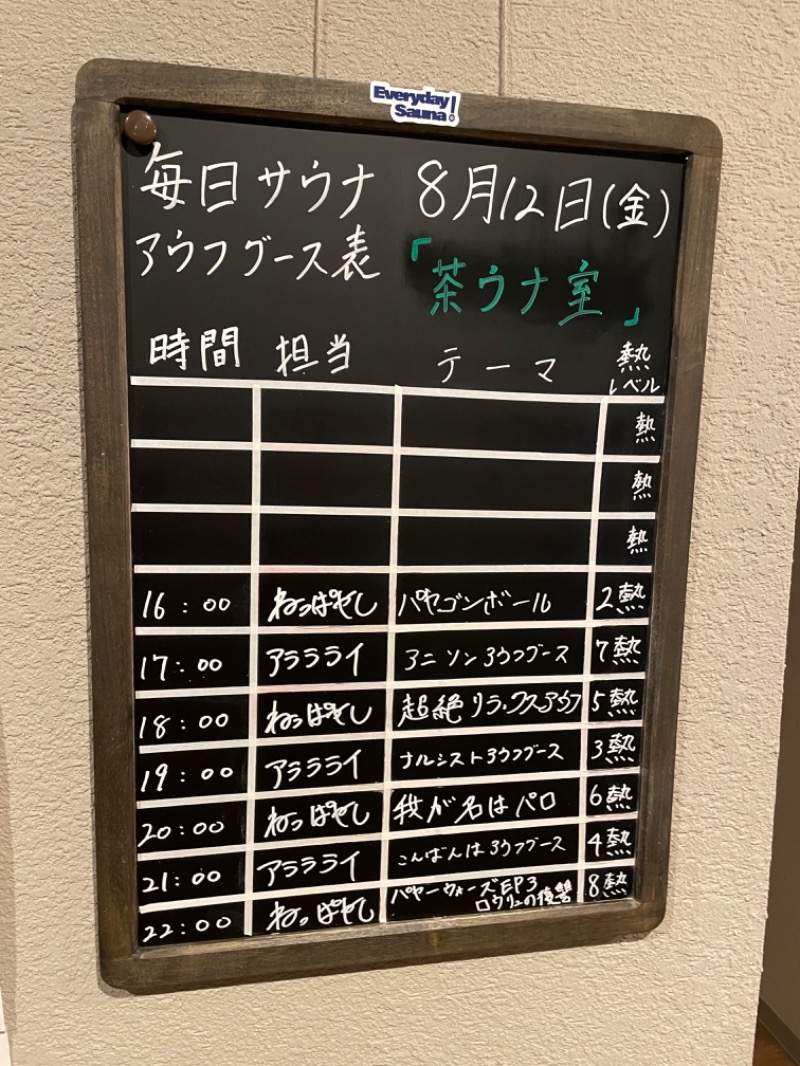 Everyday!
Sauna
毎日サウナ 8月12日(金)
アウフグース表 「茶ウナ室」
時間 担当 テーマ 熱レベル
熱
熱
熱
16:00 ねっぱやし パヤゴンボール 2熱
17:00 アラララライ アニソンアウフグース 7熱
18:00 ねっぱやし 超絶リラックスアウフ 5熱
19:00 アララライ ナルシストアウフグース 3熱
20:00 ねっぱやし 我が名はパロ 6熱
21:00 アララライ こんばんはアウフグース 4熱
22:00 ねっぱやし パヤーウォーズEP3 8熱
ロウリュの復讐